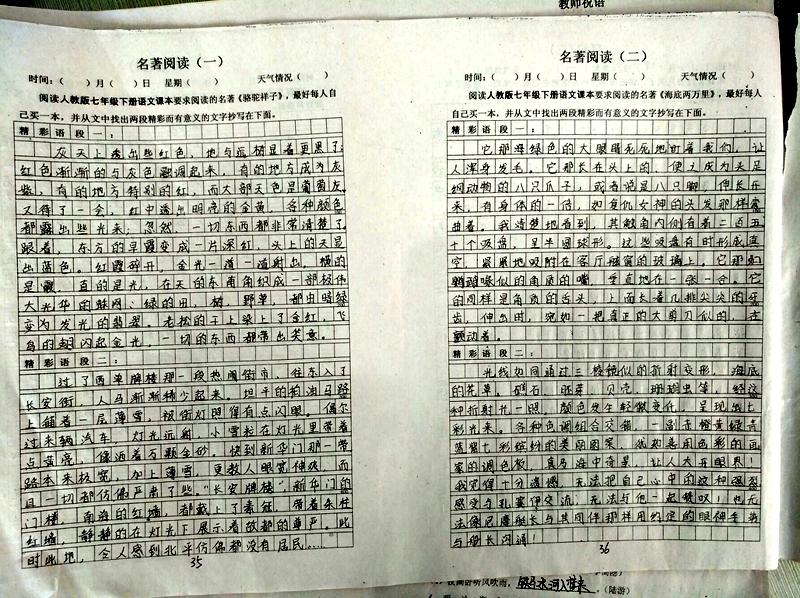 教师祝语
名著阅读（一）
时间：（　　）月（　　）日　星期（　　）　　天气情况（　　）
阅读人教版七年级下册语文课本要求阅读的名著《骆驼祥子》，最好每人自
己买一本，并从文中找出两段精彩而有意义的文字抄写在下面。
精彩语段一：
灰天上透出些红色，地与远树显着更黑了；
红色渐渐的与灰色融调起来，有的地方成为灰
紫，有的地方特别的红，而大部天色是葡萄灰。
又待了一会，红中透出明亮的金黄，各种颜色
都露出些光来；忽然，一切东西都非常清楚了。
跟着，东方的早霞变成一片深红，头上的天显
出蓝色。红霞碎开，金光一道一道射出，横的
是霞，直的是光，在天的东南角织成一部极伟
大光华的蛛网：绿的田，树，野草，都由暗绿
变为发光的翡翠。老松的干上染上了金红，飞
鸟的翅闪起金光，一切的东西都带出笑意。
精彩语段二：
过了西单牌楼那一段热闹街市，往东入了
长安街，人马渐渐稀少起来。坦平的柏油马路
上铺着一层薄雪，被街灯照得有点闪眼。偶尔
过来辆汽车，灯光远射，小雪粒在灯光里带着
点黄亮，像洒着万颗金砂。快到新华门那一带，
路本来极宽，加上薄雪，更教人眼宽神爽，而
且一切都仿佛严肃了些。“长安牌楼”，新华门的
门楼，南海的红墙，都戴上了素冠，带着朱柱
红墙，静静的在灯光下展示着故都的尊严。此
时此地，令人感到北平仿佛都没有居民……
35
名著阅读（二）
时间：（　　）月（　　）日　星期（　　）　　天气情况（　　）
阅读人教版七年级下册语文课本要求阅读的名著《海底两万里》，最好每人
自己买一本，并从文中找出两段精彩而有意义的文字抄写在下面。
精彩语段一：
它那海绿色的大眼睛死死地盯着我们，让
人浑身发毛。它那长在头上的，使之成为头足
纲动物的八只爪子，或者说是八只脚，伸长开
来，有身体的一倍，如复仇女神的头发那样弯
曲着。我清楚地看到，其触角内侧有着二百五
十个吸盘，呈半圆球形。这些吸盘有时形成真
空，紧紧地吸附在客厅舷窗的玻璃上，它那如
鹦鹉喙似的角质的嘴，垂直地在一张一合。它
的同样是角质的舌头，上面长着几排尖尖的牙
齿，伸出时，宛如一把真正的大剪刀似的，在
颤动着。
精彩语段二：
光线如同通过三棱镜似的折射变形，海底
的花草、礁石、胚芽、贝壳、珊瑚虫等，经这
种折射光一照，颜色发生轻微变化，呈现出七
彩光来。各种色调组合交错，一副赤橙黄绿青
蓝紫七彩缤纷的美丽图案，
家的调色板，真乃海中奇景，让人大开眼界！
我觉得十分遗憾，无法把自己心中的这种强烈
感受与孔塞伊交流，无法与他一起赞叹！也无
法像尼摩艇长与其同伴那样用约定的眼神手势
与艇长沟通！
36
夜阑卧听风吹雨，铁马冰河入梦来。（陆游）